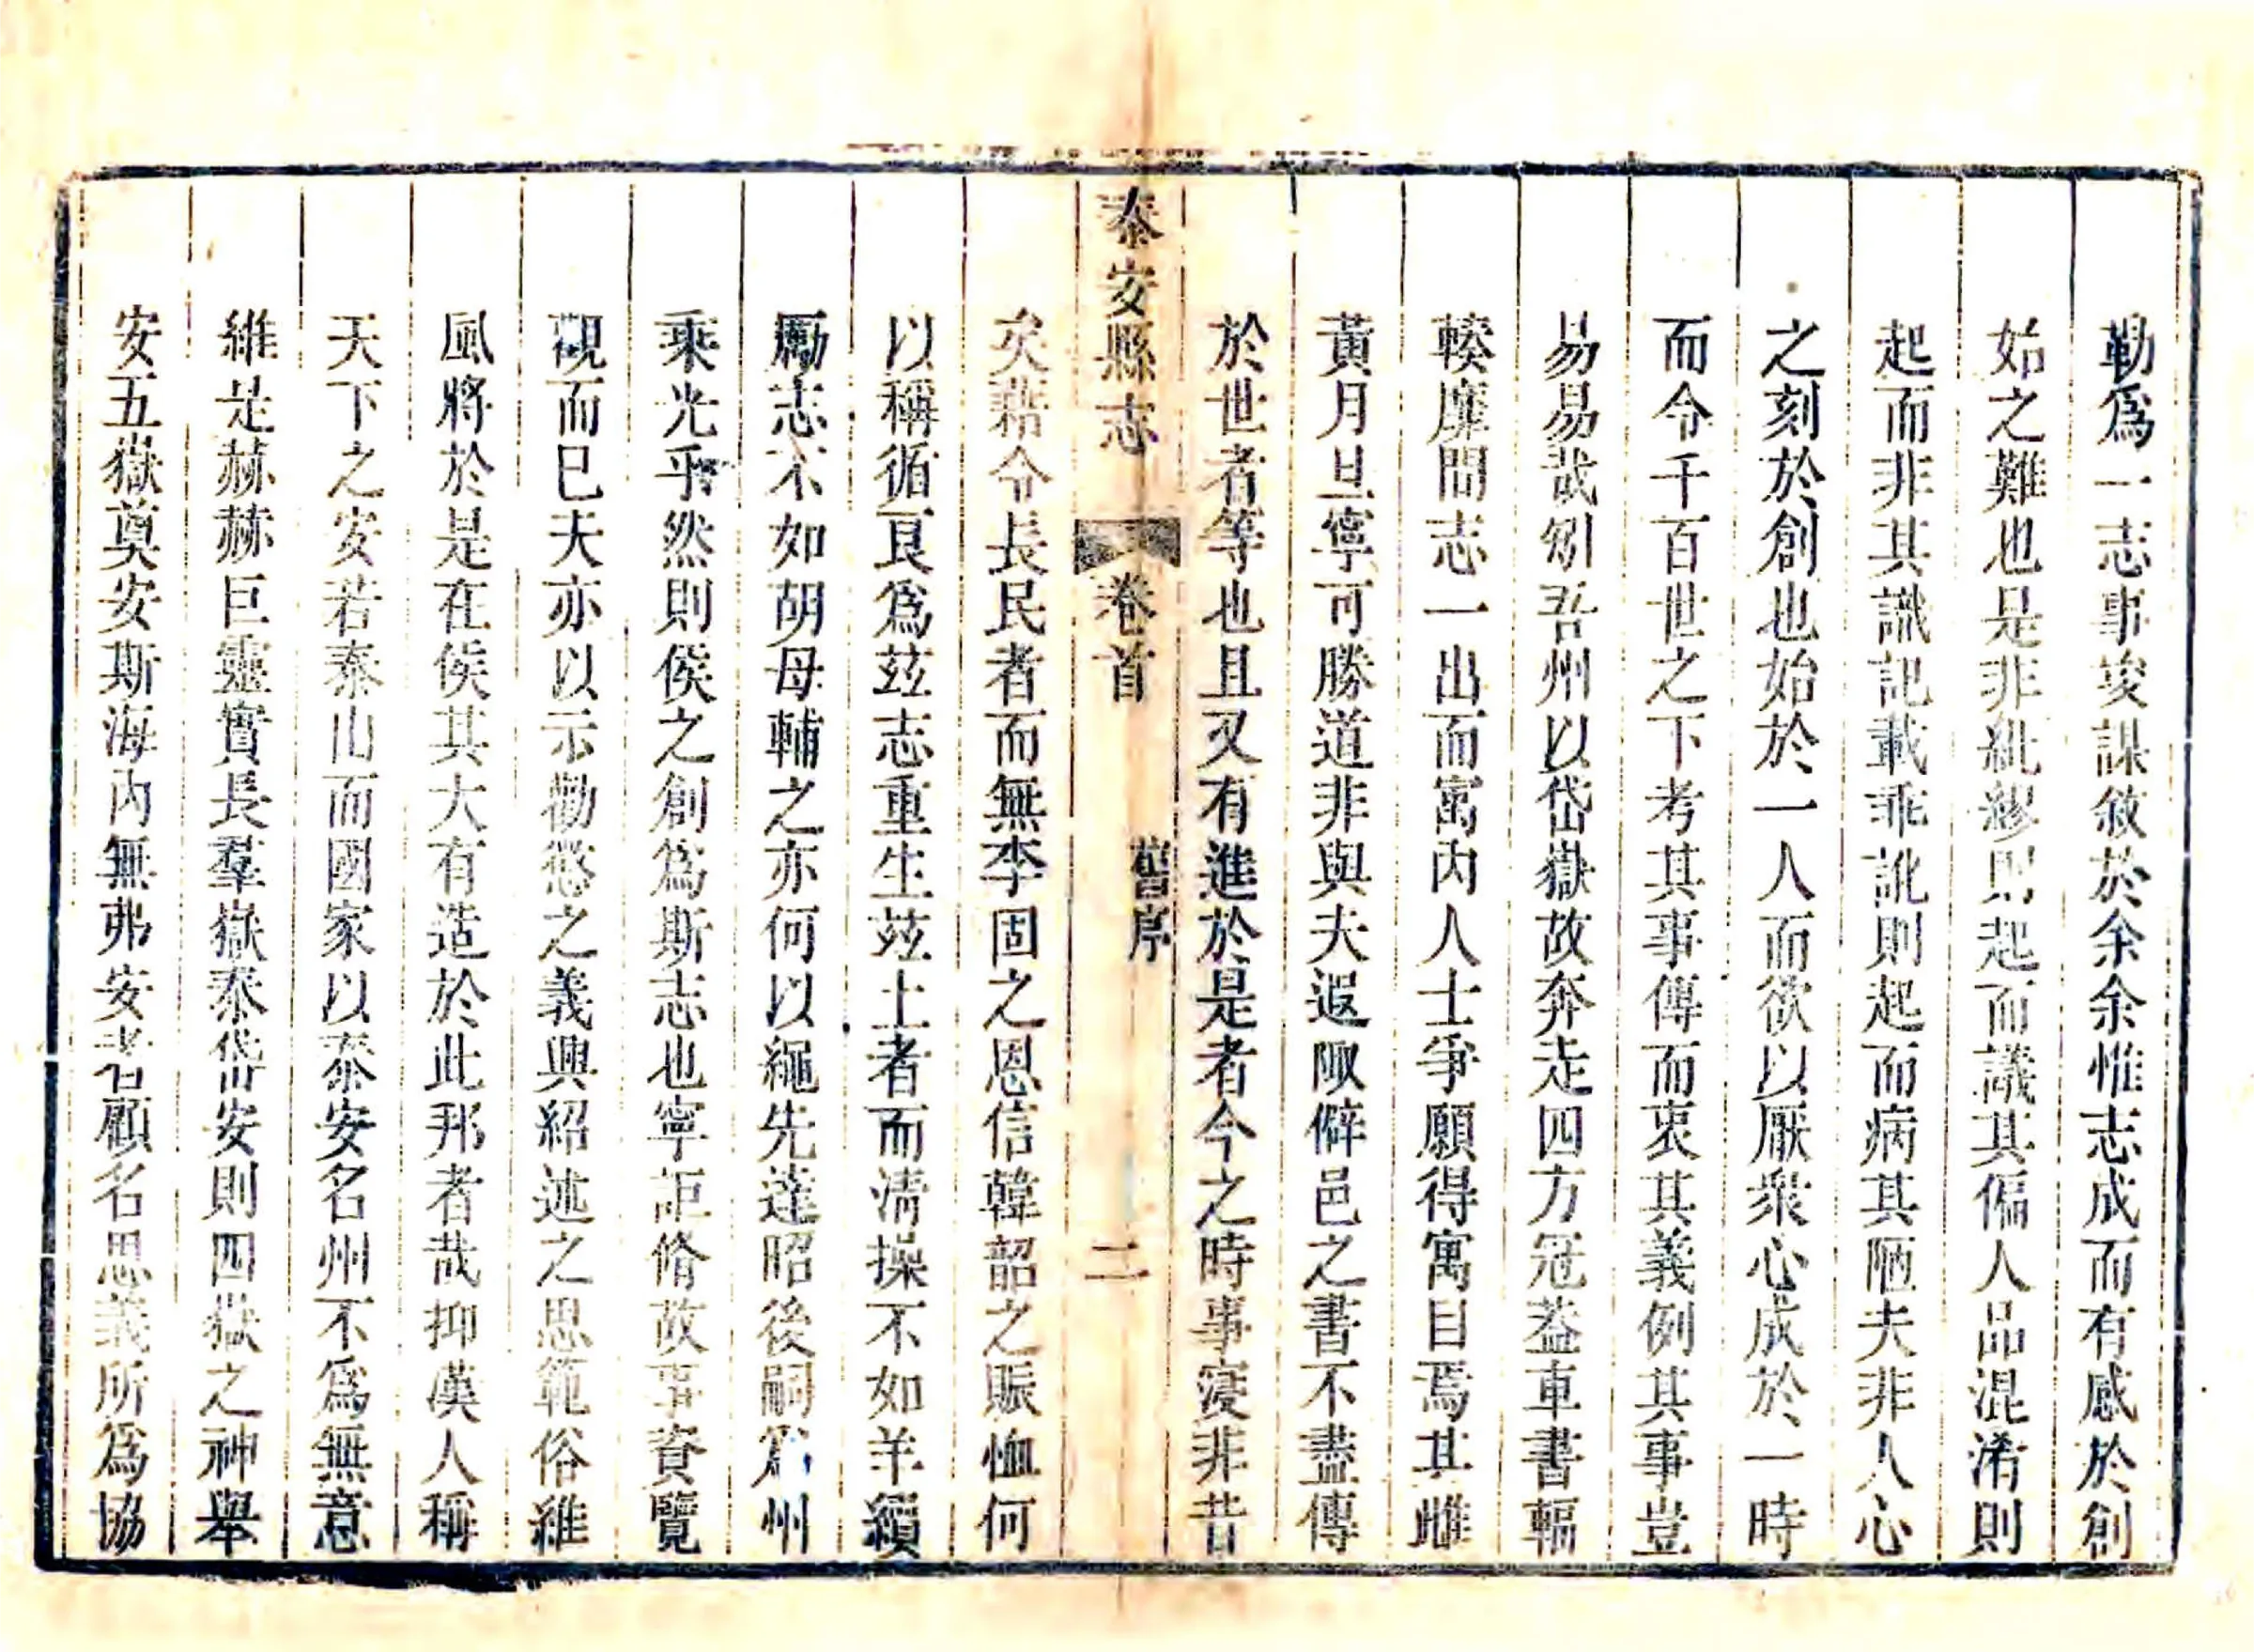 勒爲一志事竣謀敘於余余惟志成而有感於創
始之難也是非紕繆則起而議其偏人品混淆則
起而非其識記載乖訛則起而病其陋夫非人心
之刻於創也始於一人而欲以厭衆心成於一時
而令千百世之下考其事傳而衷其義例其事豈
易易哉矧吾州以岱嶽故奔走四方冠葢車書輻
輳靡間志一出而寓內人士爭願得寓目焉其雌
黃月旦寧可勝道非與夫遐陬僻邑之書不盡傳
於世者等也且又有進於是者今之時事寖非昔
泰安縣志
卷首
舊序
二
矣藉令長民者而無李固之恩信韓韶之賑恤何
以稱循良爲茲志重生茲土者而淸操不如羊續
勵志不如胡母輔之亦何以繩先達昭後嗣爲州
乘光乎然則侯之創爲斯志也寧詎脩故事資覽
觀而已夫亦以示勸懲之義興紹述之思範俗維
風將於是在侯其大有造於此邦者哉抑漢人稱
天下之安若泰山而國家以泰安名州不爲無意
維是赫赫巨靈實長羣嶽泰岱安則四嶽之神舉
安五嶽奠安斯海內無弗安者顧名思義所爲協